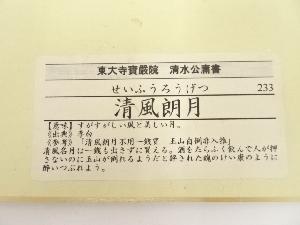 東大寺寶嚴院 清水公庸書
せいふうろうげつ 233
清風朗月
【意味】すがすがしい風と美しい月。
《出典》李白
《参考》「清風朗月不用一銭買 玉山自倒非人推」
清風名月は一銭も出さずに買える。酒をたらふく飲んで人が押
さないのに玉山が倒れるようだと評された魏のけい康のように
酔いつぶれよう。